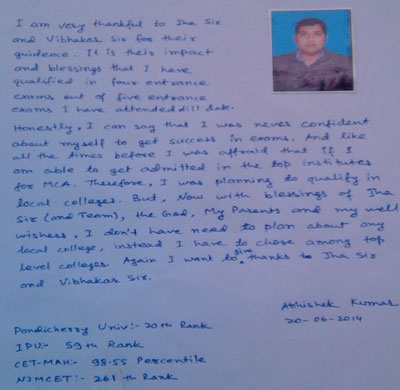 I am very thankful to Jha Sir
and Vibhakar Sir for their
guidence. It is their impact
and blessings that I have
qualified in four entrance
exams out of five entrance
exams I have attended till date.
Honestly, I can say that I was never confident
about myself to get success in exams. And like
all the times before I was affraid that if I
am able to get admitted in the top institutes
for MCA. Therefore, I was planning to qualify in
local colleges. But, Now with blessings of Jha
Sir (and Team), the God, My Parents and my well
wishess, I don't have need to plan about any
local college, instead I have to chose among top
level colleges. Again I want to give thanks to Jha Sir
and Vibhakar Sir.
Abhishek Kumar
20-06-2014
Pondicherry Univ:- 20th Rank
IPU:- 59th Rank
CET-MAH:- 98.55 Percentile
NIMCET:- 261th Rank